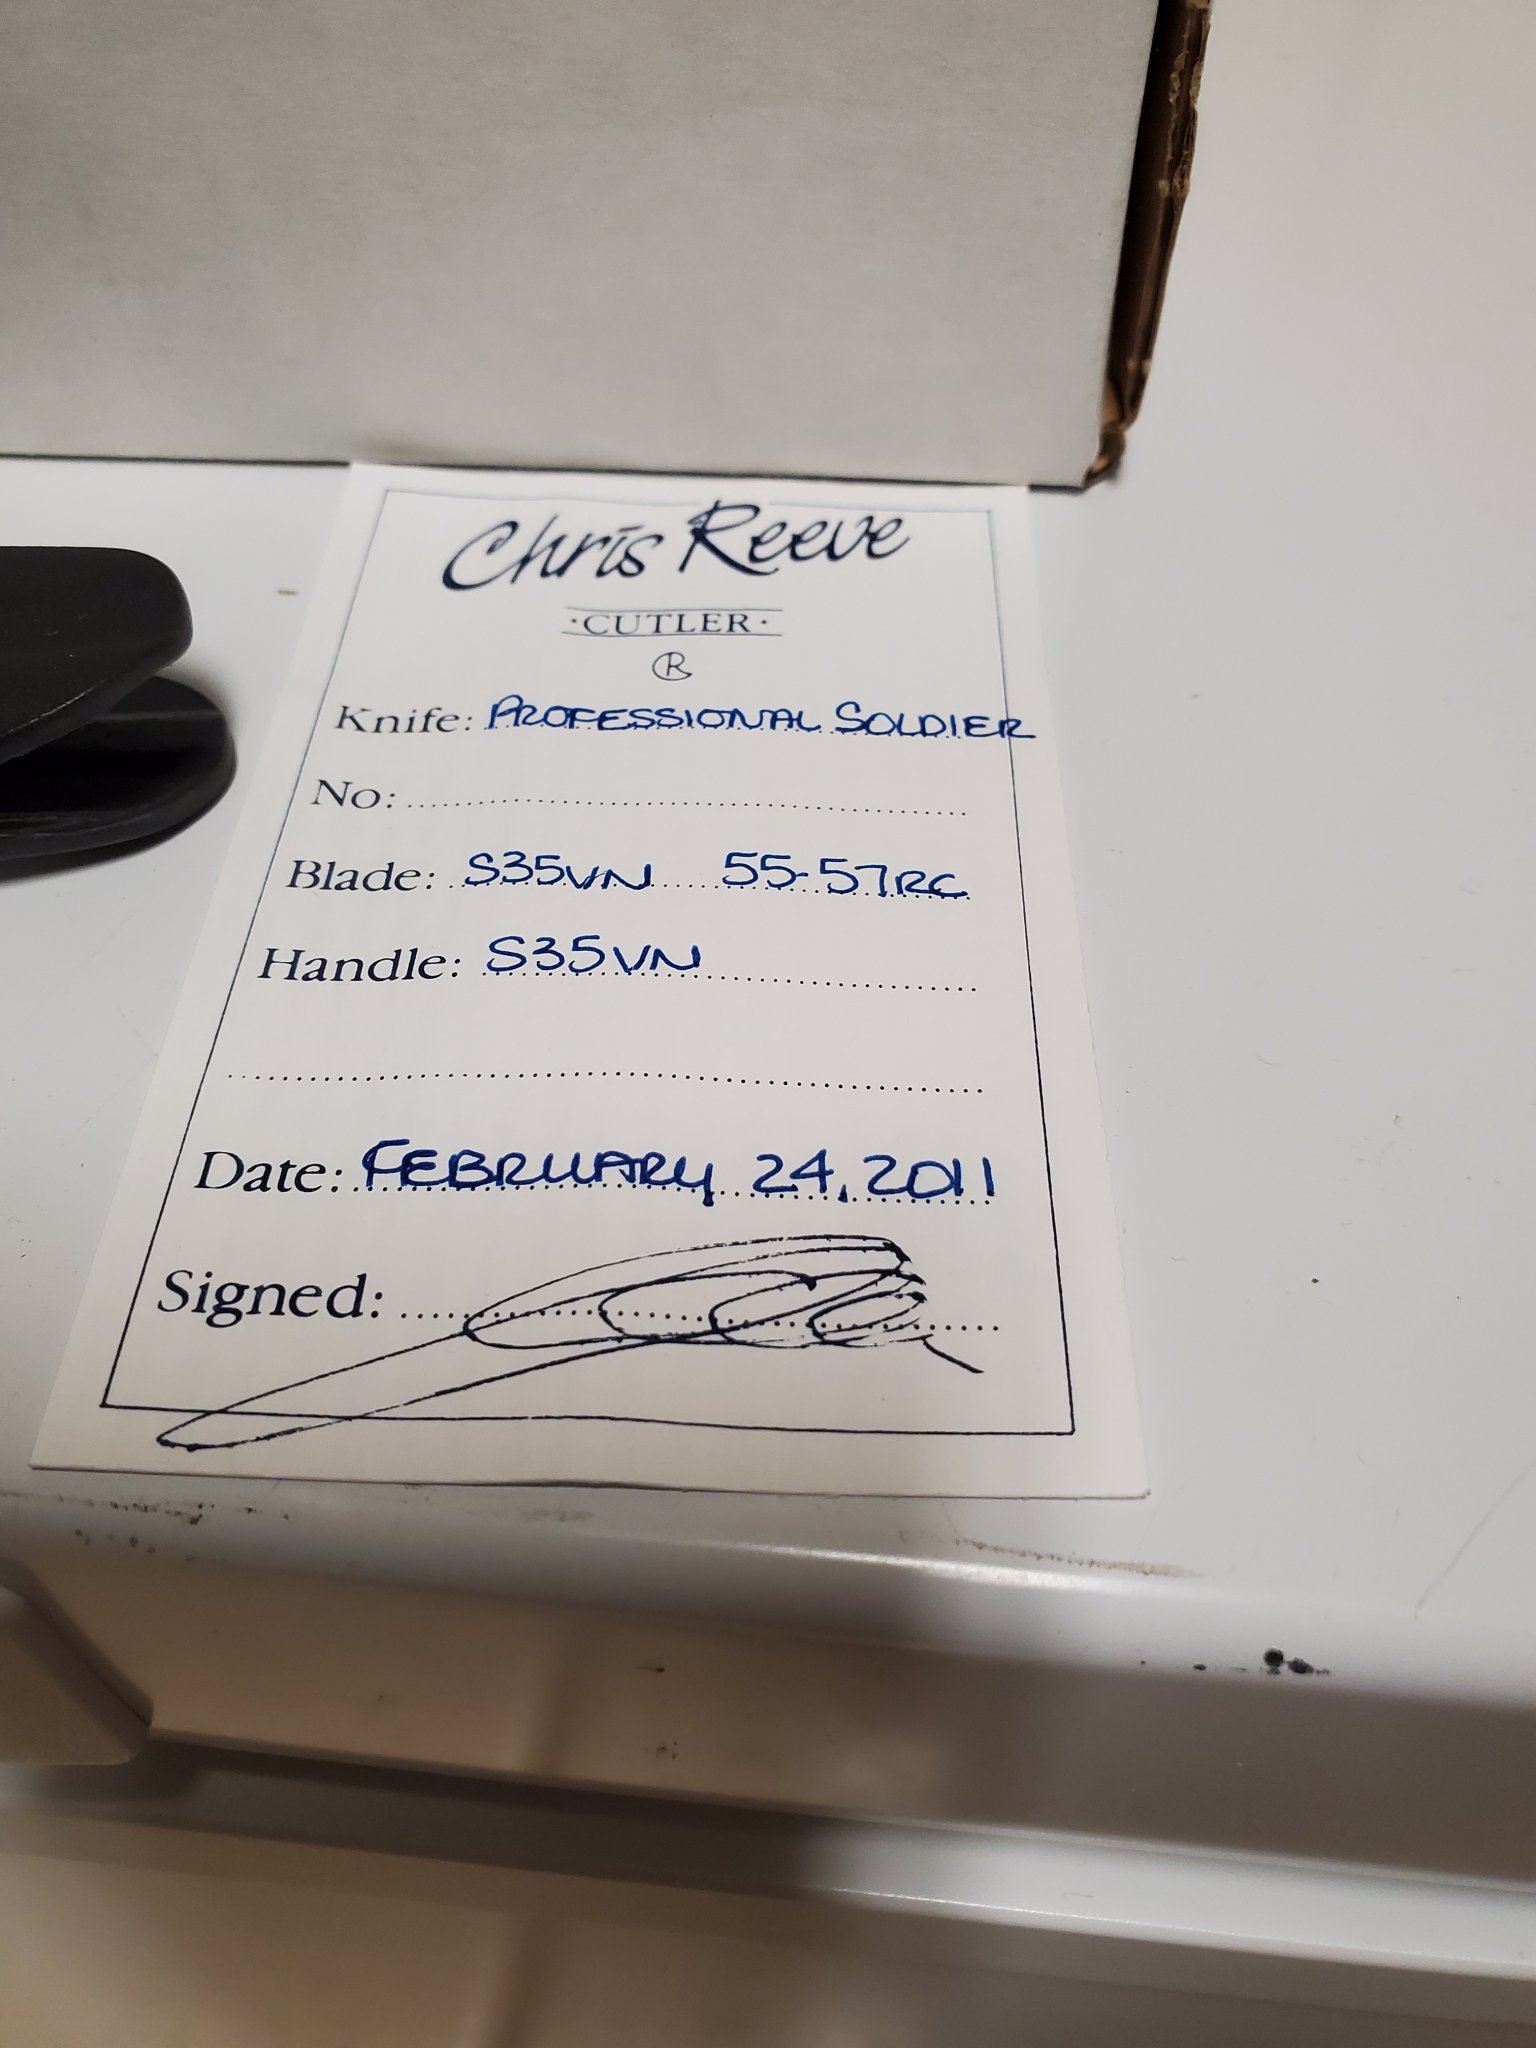 Chris Reeve
·CUTLER·
R
Knife: PROFESSIONAL SOLDIER
No:
Blade: S35VN 55-57RC
Handle: S35VN
Date: FEBRUARY 24, 2011
Signed: